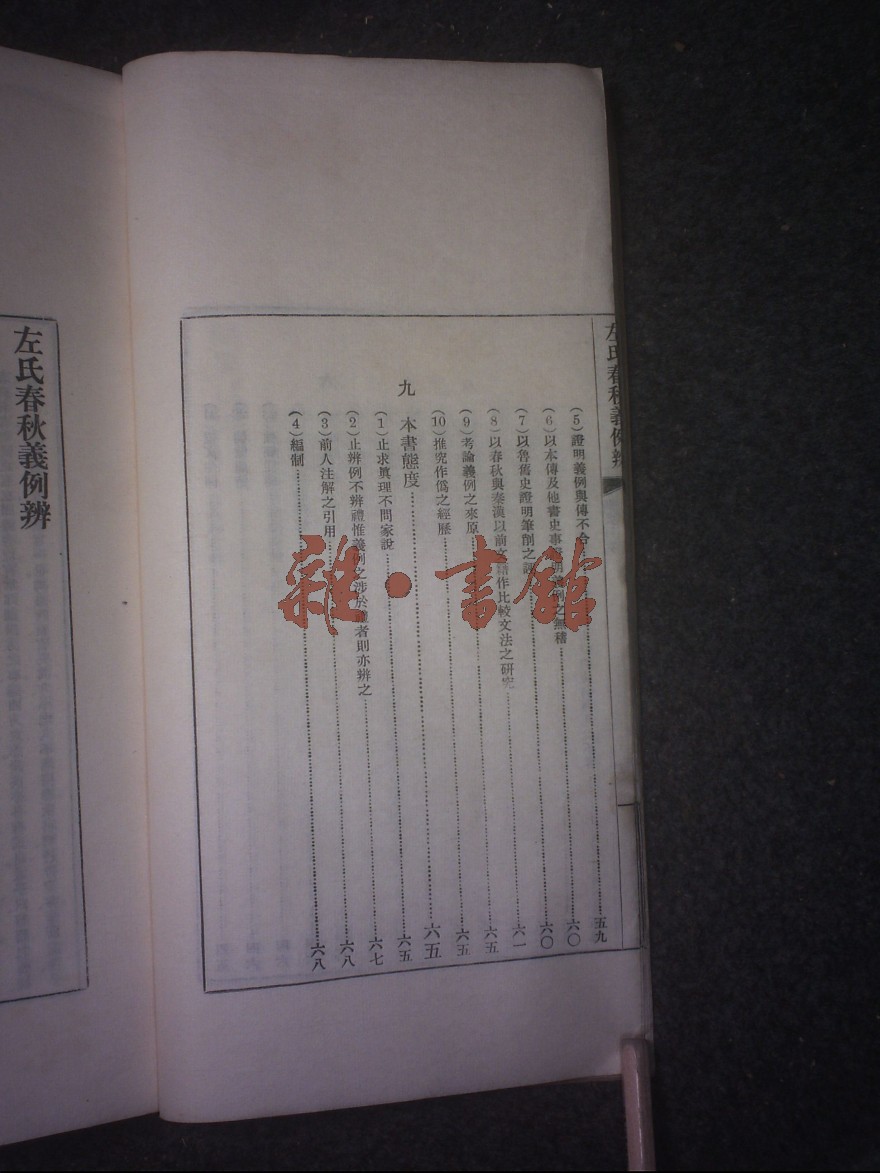 左氏春秋義例辨
(5)證明義例與傳不合……五九
(6)以本傳及他書史事證明義例之無稽……六〇
(7)以魯舊史證明筆削之……六〇
(8)以春秋與秦漢以前文籍作比較文法之研究……六一
(9)考論義例之來原……六五
(10)推究作僞之經歷……六五
九 本書態度……六五
(1)止求眞理不問家說……六五
(2)止辨例不辨禮惟義例之涉於禮者則亦辨之……六七
(3)前人注解之引用……六八
(4)編制……六八
左氏春秋義例辨
雜·書館